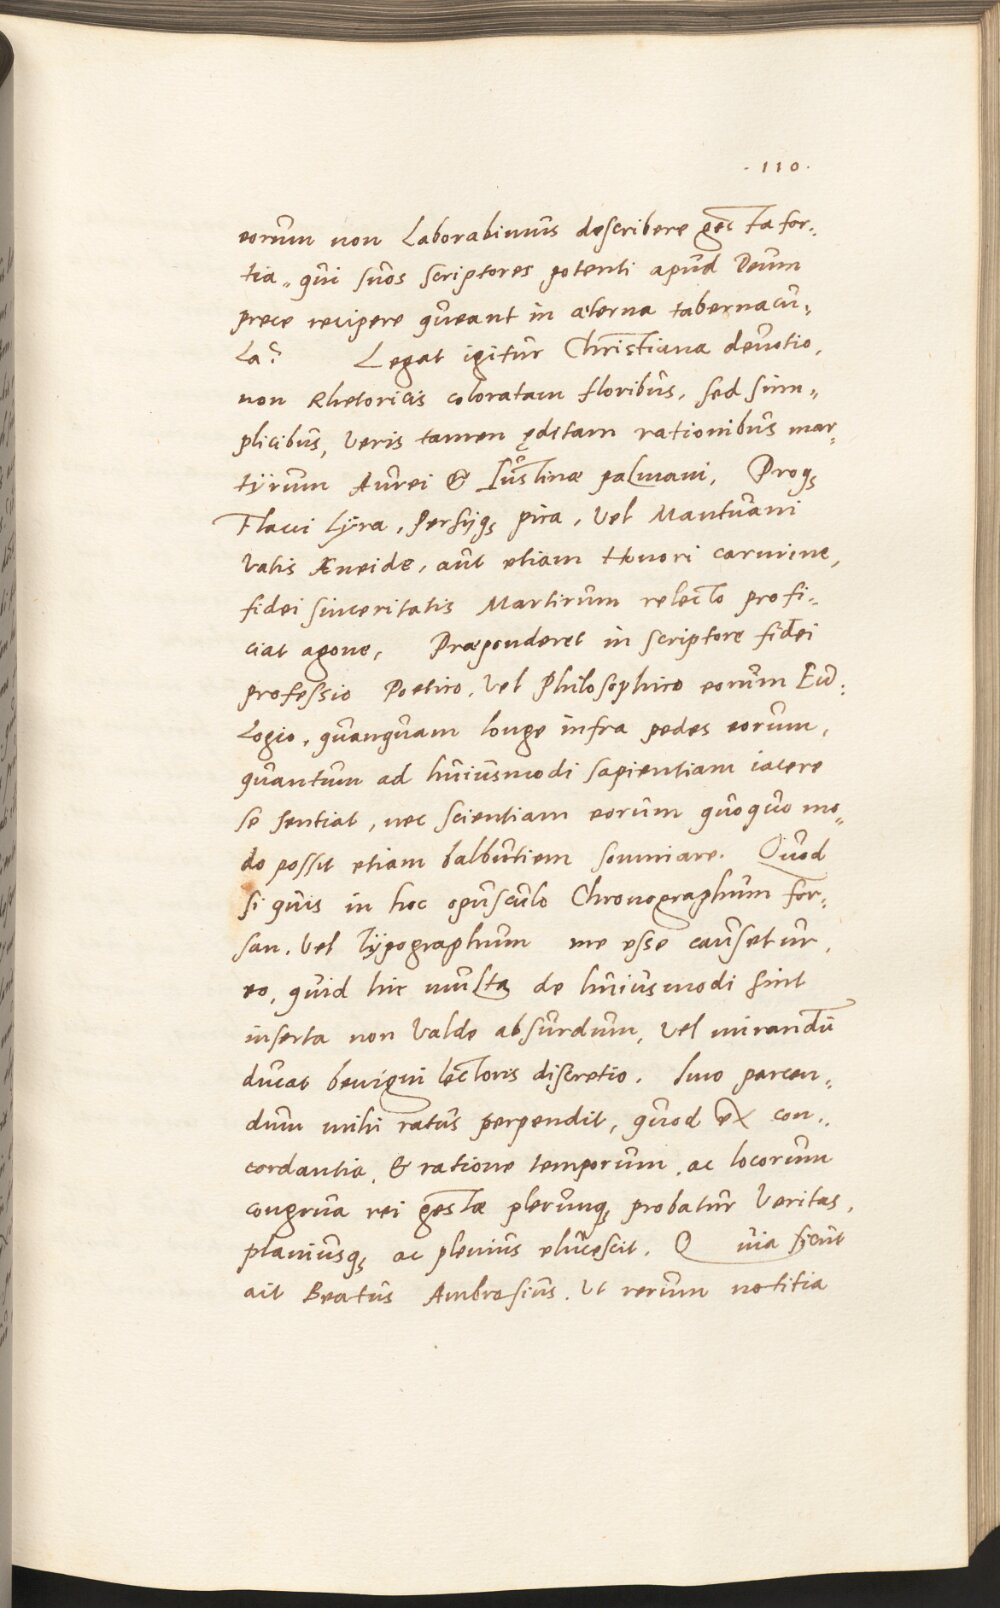 . 110 .
eorum non laborabimus describere gesta for„
tia, qui suos scriptores potenti apud Deum
prece recipere queant in æterna tabernacu„
la? Legat igitur Christiana deuotio,
non Rhetoricis coloratam floribus, sed sim„
plicibus, veris tamen ęditam rationibus mar„
tÿrum Aurei & Iustinæ palmam, Proq̨
Flacci lÿra, Persijq̨ pira, vel Mantuani
vatis Æneide, aut etiam Homori carmine,
fidei sinceritatis Martirum relecto profi„
ciat agone, Præponderet in scriptore fidei
professio Poetico, vel Philosophico eorum Eu„
logio, quanquam longe infra pedes eorum,
quantum ad huiusmodi sapientiam iacere
se sentiat, nec scientiam eorum quoquo mo„
do possit etiam balbutiem somniare. Quod
si quis in hoc opusculo Chronographum for„
san, vel Tÿpographum me esse causetur,
eo, quid hic multa de huiusmodi sint
inserta non valde absurdum, vel mirandū
ducat benigni lectoris discretio. Imo parcen„
dum mihi ratus perpendit, quod ex con„
cordantia, & ratione temporum, ac locorum
congrua rei gestæ plerunq̨ probatur veritas,
planiusq̨ ac plenius elucescit. Quia sicut
ait Beatus Ambrosius. Ut rerum notitia